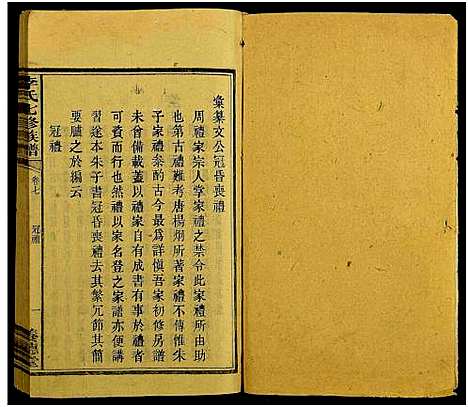 彙纂文公冠昏喪禮
周禮家宗人掌家禮之禁令此家禮所由助
也第古禮難考唐楊烱所著家禮不傳惟朱
子家禮叅酌古今最爲詳慎吾家初修房譜
未曾備載蓋以禮家自有成書有事於禮者
可費而行也然禮以家名登之家譜亦便講
習遂本朱子書冠昏喪禮去其繁冗節其簡
要臚之於編云
冠禮
李氏七修族譜
卷七
冠禮
一